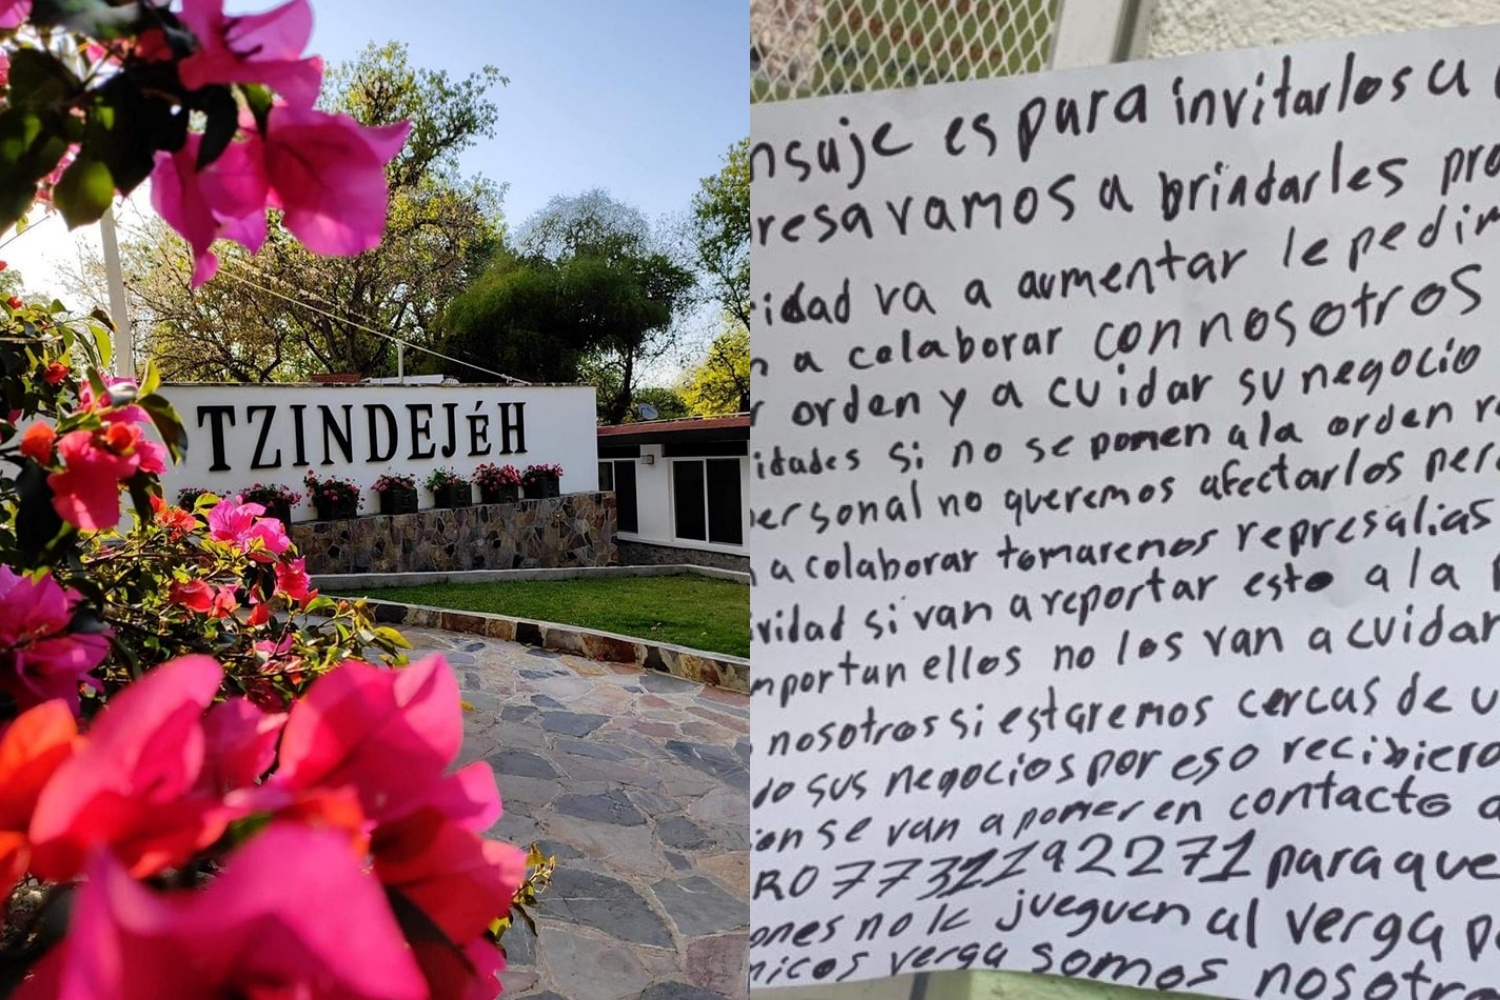 TZINDEJéH
nsaje es para invitarlos a
resa vamos a brindarles pro
idad va a aumentar le pedim
a colaborar con nosotros
orden y a cuidar su negocio
idades si no se ponen a la orden r
personal no queremos afectarlos pero
a colaborar tomarenos represalias
vidad si van a reportar esto a la p
mportan ellos no los van a cuidar
nosotros si estaremos cercas de u
do sus negocios por eso recibiero
ion se van a poner en contacto a
RO para que
ones no le jueguen al verga p
nicos verga somos nosotro